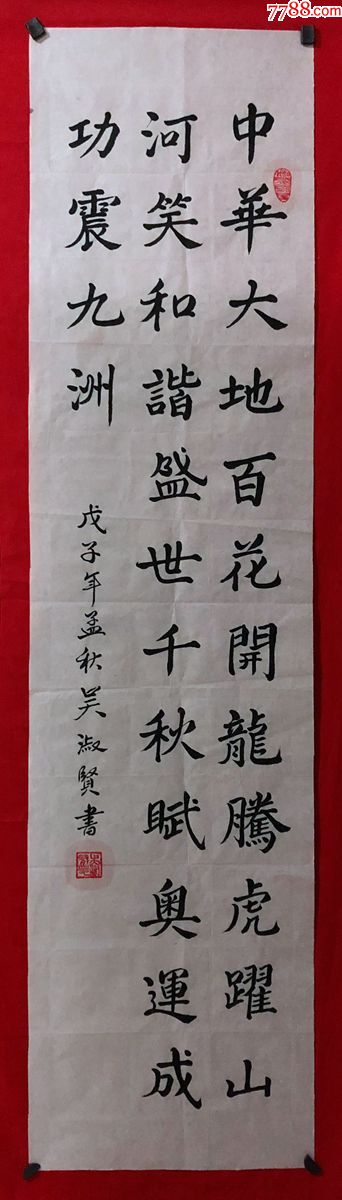 7788.com
中華大地百花開龍騰虎躍山
河笑和諧盛世千秋賦奥運成
功震九洲
戊子年孟秋吴淑賢書